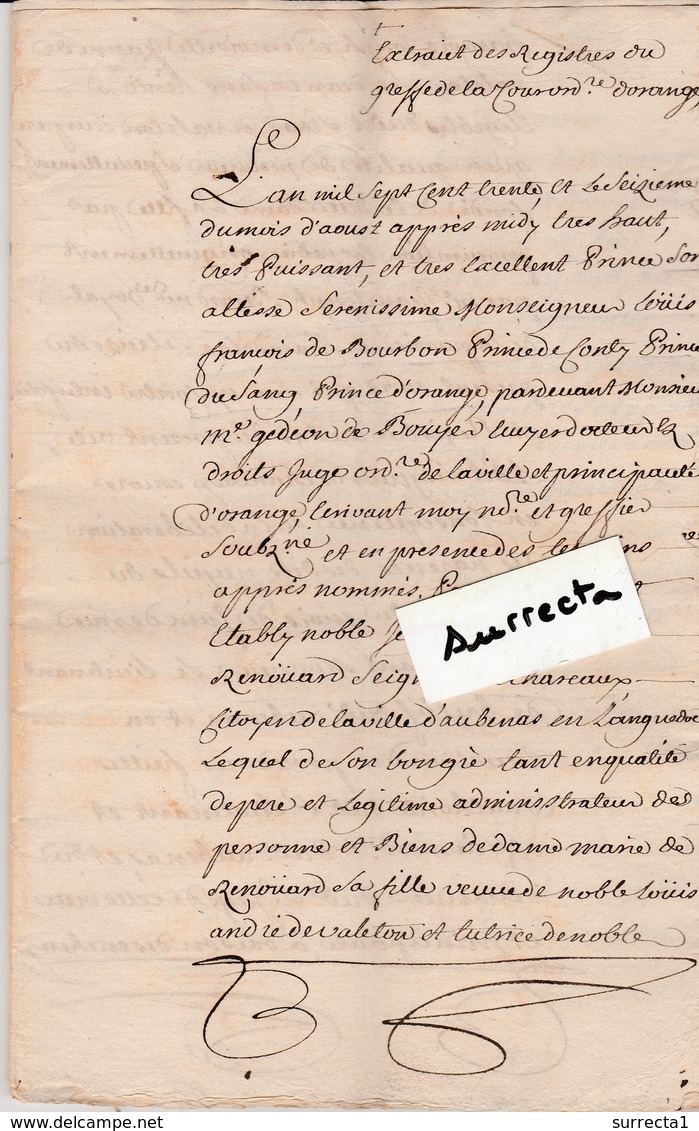 Extraict des Registres du
greffe de la Cour ord.re dorange,
L'an mil Sept Cent trente, et Le Seizieme
du mois d'aoust apprés midy tres haut,
tres Puissant, et tres Excellent Prince Son
altesse Serenissime Monseigneur Loüis
françois de Bourbon Prince de Conty Prince
du Sang, Prince d'orange, pardevant Monsieur
m.e gedeon de Bouyer Escuyer docteur Ez
droits Juge ord.re de la ville et principauté
d'orange, Ecrivant moy no.re et greffier
Soubz.né et en presence des
apprés nommés,
Estably noble
Renoüard Seig Chareaux
Citoyen de la ville d'aubenas en Languedoc
Lequel de Son bongré tant en qualité
de pere et Legitime administrateur des
personne et Biens de dame marie de
Renoüard Sa fille veuve de noble Loüis
andré de valeton et tutrice de noble
Surrecta
surrecta1